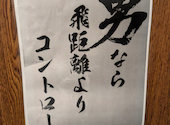 男なら
飛距離より
コントロー